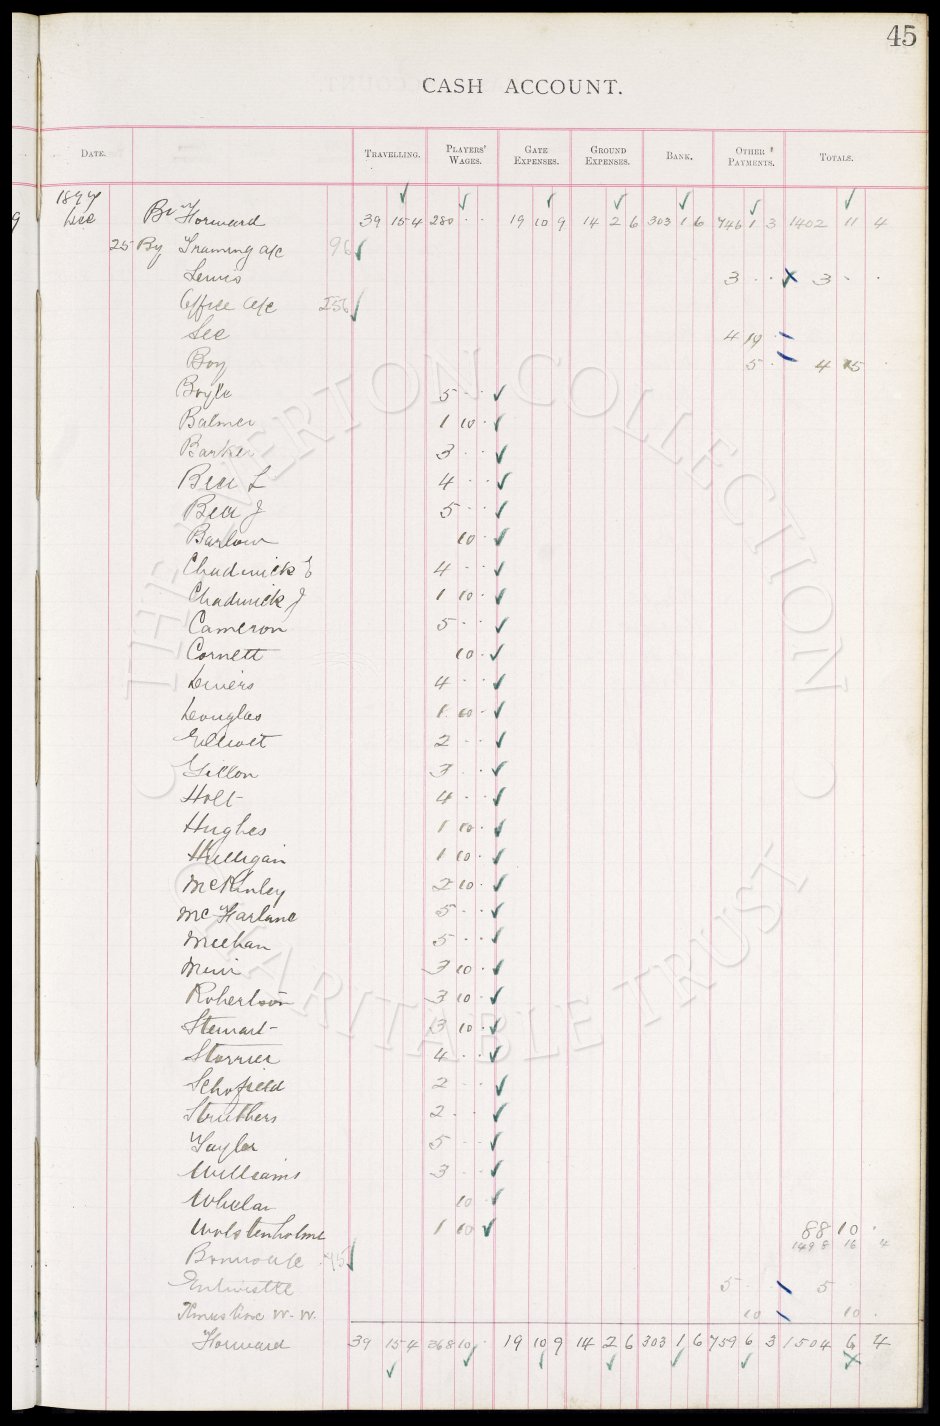 45
CASH ACCOUNT.
DATE. TRAVELLING. PLAYERS' WAGES. GATE EXPENSES. GROUND EXPENSES. BANK. OTHER PAYMENTS. TOTALS.
1897
9 Dec Bt Forward 39 15 4 280 - - 19 10 9 14 2 6 303 1 6 746 1 3 1402 11 4
25 By Training a/c 96
Lewis 3 - - 3 - -
Office a/c 256
Sec 4 19 -
Boy 5 - 4 15
Boyle 5 - -
Balmer 1 10 -
Barker 3 - -
Bell L 4 - -
Bell J 5 - -
Barlow 10 -
Chadwick E 4 - -
Chadwick J 1 10 -
Cameron 5 - -
Cornett 10 -
Divers 4 - -
Douglas 1 10 -
Elliott 2 - -
Gillon 3 - -
Holt 4 - -
Hughes 1 10 -
Hulligan 1 10 -
McKinley 2 10 -
McFarlane 5 - -
Meehan 5 - -
Muir 3 10 -
Robertson 3 10 -
Stewart 3 10 -
Storrier 4 - -
Schofield 2 - -
Struthers 2 - -
Taylor 5 - -
Williams 3 - -
Whelan 10 -
Wolstenholme 1 10 88 10 -
149 8 16 4
Bonus a/c 45
Entwistle 5 - - 5
Xmas Box W. W. 10 10 -
Forward 39 15 4 368 10 - 19 10 9 14 2 6 303 1 6 759 6 3 1504 6 4
THE EVERTON COLLECTION
CHARITABLE TRUST